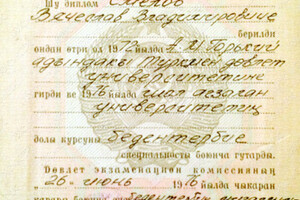 Шу диплом Смелов
Вячеслав Владимирович
берилди
ондан өтри ол 1972 йылда А. М. Горький
адындакы Түркмен довлет
университетине
гирди ве 1976 йылда
университетиң
долы курсуны бедентербие
специальносты боюнча гутарды.
Дөвлет экзаменацион комиссияның
"26" июнь 1976 йылда чыкаран